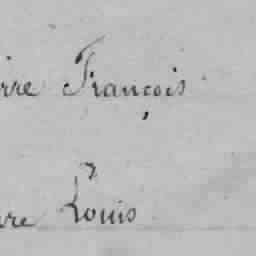 rre François
rre Louis